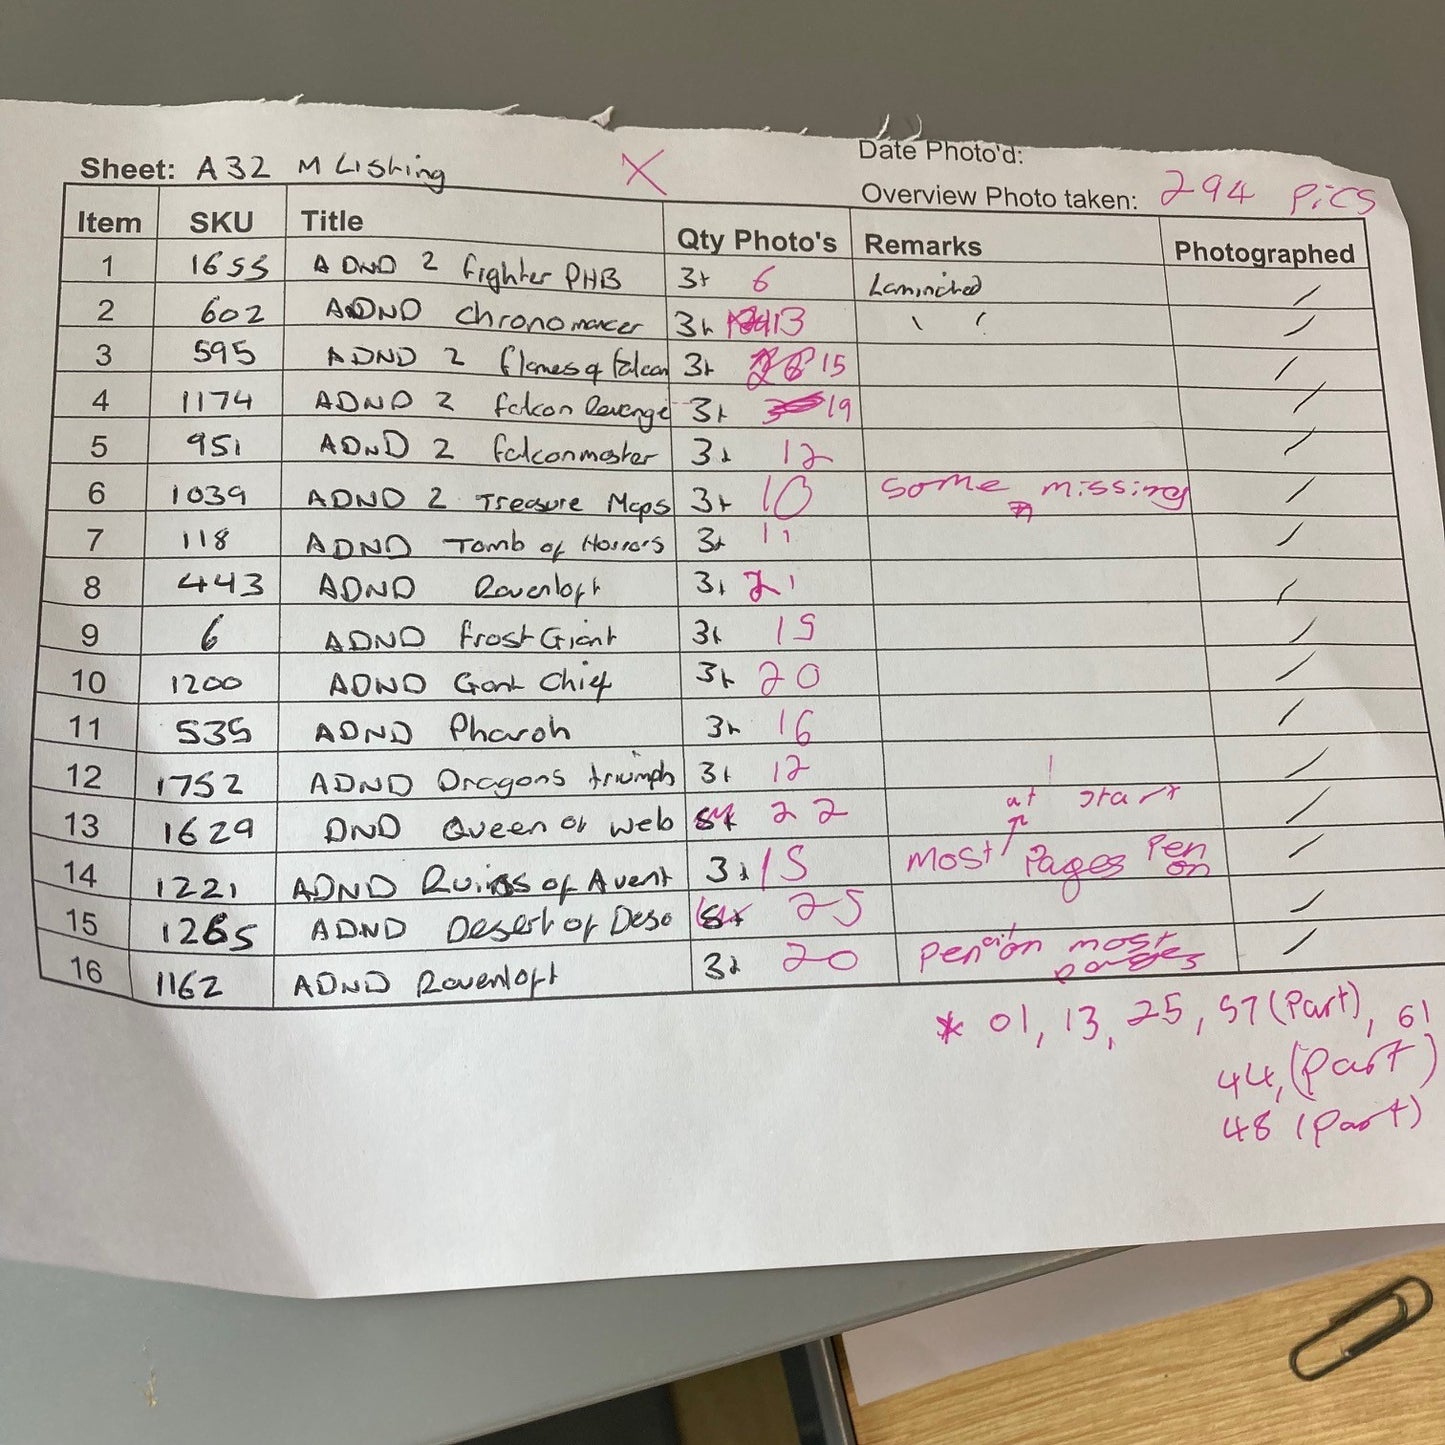 Sheet: A32 M Listing X Date Photo'd:
Overview Photo taken: 294 Pics
Item SKU Title Qty Photo's Remarks Photographed
1 1655 ADND 2 Fighter PHB 3+ 6 Laminched /
2 602 ADND Chronomancer 3+ 13 " /
3 595 ADND 2 Flames of Falcon 3+ 15 /
4 1174 ADND 2 Falcon Revenge 3+ 19 /
5 951 ADND 2 Falconmaster 3+ 12 /
6 1039 ADND 2 Treasure Maps 3+ 10 Some missing /
7 118 ADND Tomb of Horrors 3+ 11 /
8 443 ADND Ravenloft 3+ 21 /
9 6 ADND Frost Giant 3+ 15 /
10 1200 ADND Giant Chief 3+ 20 /
11 535 ADND Pharoh 3+ 16 /
12 1752 ADND Dragons triumph 3+ 12 /
13 1629 DND Queen of Web 22 at start /
14 1221 ADND Ruins of Avent 3+ 15 Most Pages Pen on /
15 1265 ADND Desert of Deso 25 /
16 1162 ADND Ravenloft 3+ 20 Pen on most pages /
* 01, 13, 25, 57 (Part), 61
44, (Part)
48 (Part)